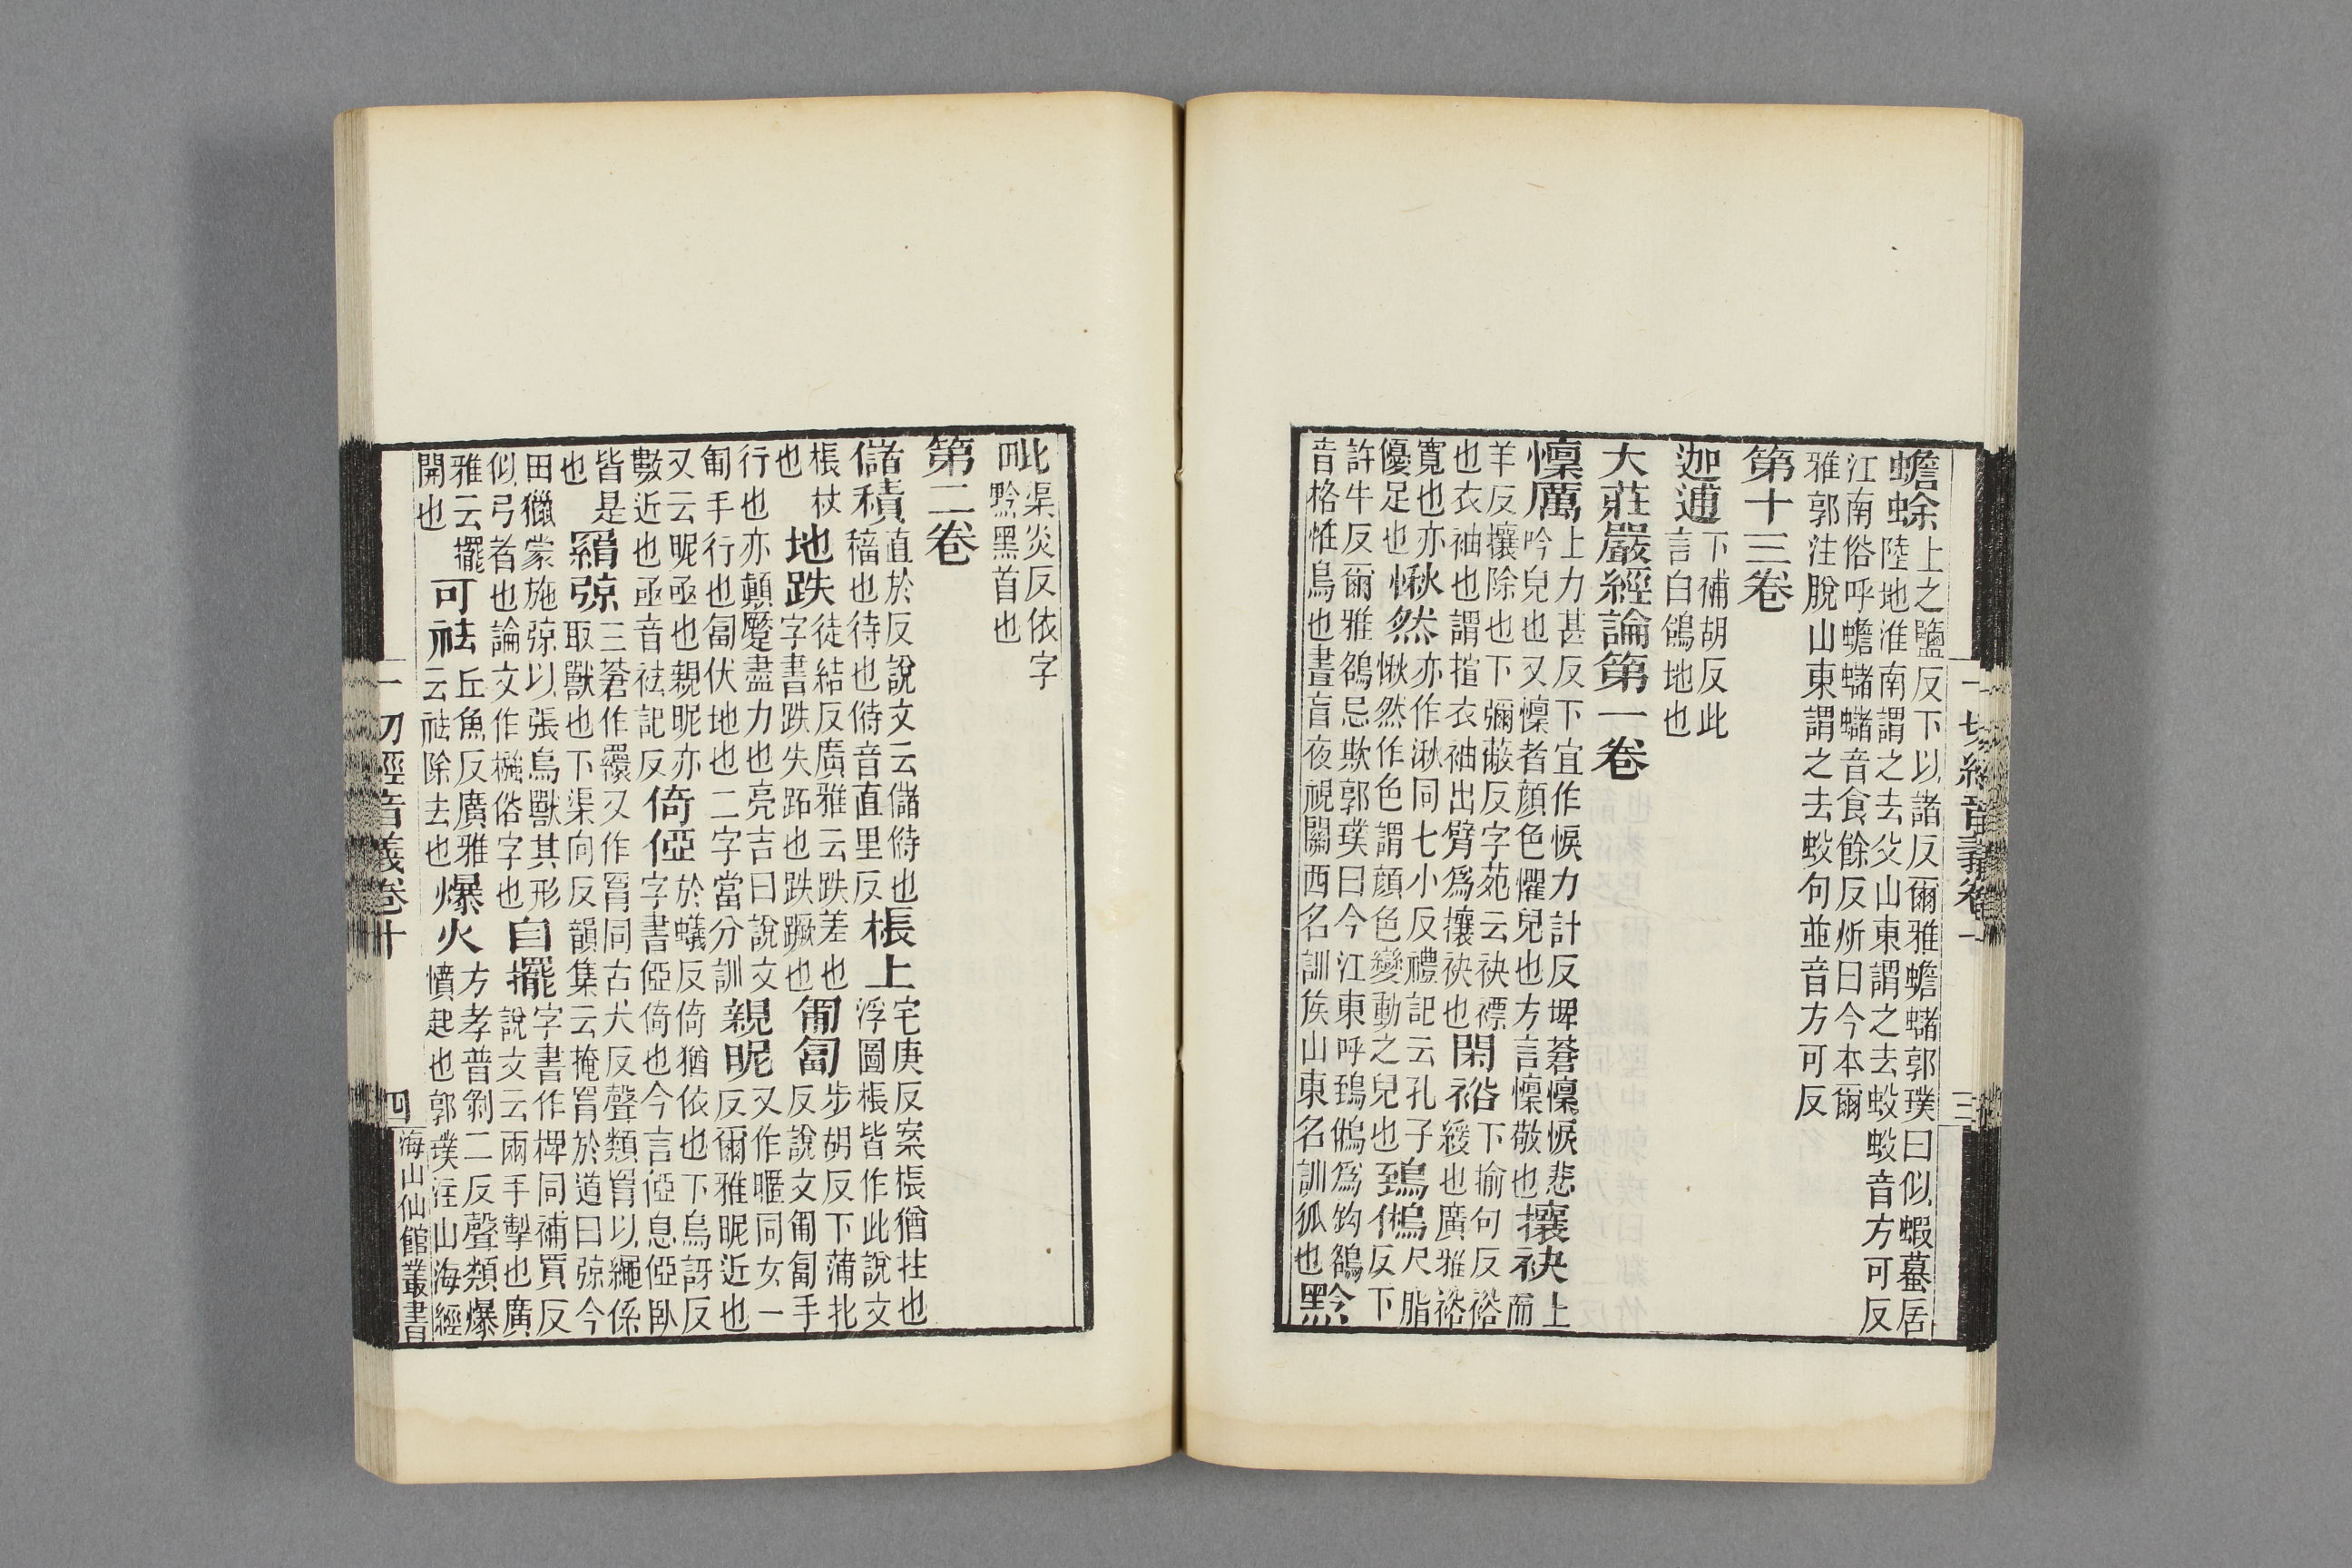 一切經音義卷十 三
蟾蜍上之鹽反下以諸反爾雅蟾蠩郭璞曰似蝦蟇居
陸地淮南謂之去父山東謂之去蚥蚥音方可反
江南俗呼蟾蠩蠩音食餘反斫曰今本爾
雅郭注脫山東謂之去蚥句並音方可反
第十三卷
迦逋下補胡反此
言白鴿地也
大莊嚴經論第一卷
懍厲上力甚反下宜作悷力計反埤蒼懍悷悲
吟皃也又懍者顏色懼皃也方言懍敬也
攘袂上
而
羊反攘除也下彌蔽反字苑云袂褾
也衣袖也謂揎衣袖出臂爲攘袂也
閑裕下揄句反裕
緩也廣雅裕
寬也亦
優足也
愀然亦作湫同七小反禮記云孔子
愀然作色謂顏色變動之皃也
鵄鵂尺脂
反下
許牛反爾雅鵅忌欺郭璞曰今江東呼鵄鵂爲鈎鵅
音格恠鳥也晝盲夜視關西名訓侯山東名訓狐也
黔
毗渠炎反依字
黔黑首也
第二卷
儲積直於反說文云儲偫也
稸也待也偫音直里反
棖上宅庚反案棖猶拄也
浮圖棖皆作此說文
棖杖
也
地跌徒結反廣雅云跌差也
字書跌失跖也跌蹶也
匍匐步胡反下蒲北
反說文匍匐手
行也亦顛蹷盡力也亮吉曰說文
匍手行也匐伏地也二字當分訓
親昵又作暱同女一
反爾雅昵近也
又云昵亟也親昵亦
數近也亟音袪記反
倚俹於蟻反倚猶依也下烏訝反
字書俹倚也今言俹息俹臥
皆是
也
羂弶三蒼作繯又作罥同古犬反聲類罥以繩係
取獸也下渠向反韻集云掩罥於道曰弶今
田獵蒙施弶以張鳥獸其形
似弓者也論文作摾俗字也
自擺字書作捭同補買反
說文云兩手擊也廣
雅云擺
開也
可祛丘魚反廣雅
云祛除去也
爆火方孝普剝二反聲類爆
憤起也郭璞注山海經
一切經音義卷十 四 海山仙館叢書